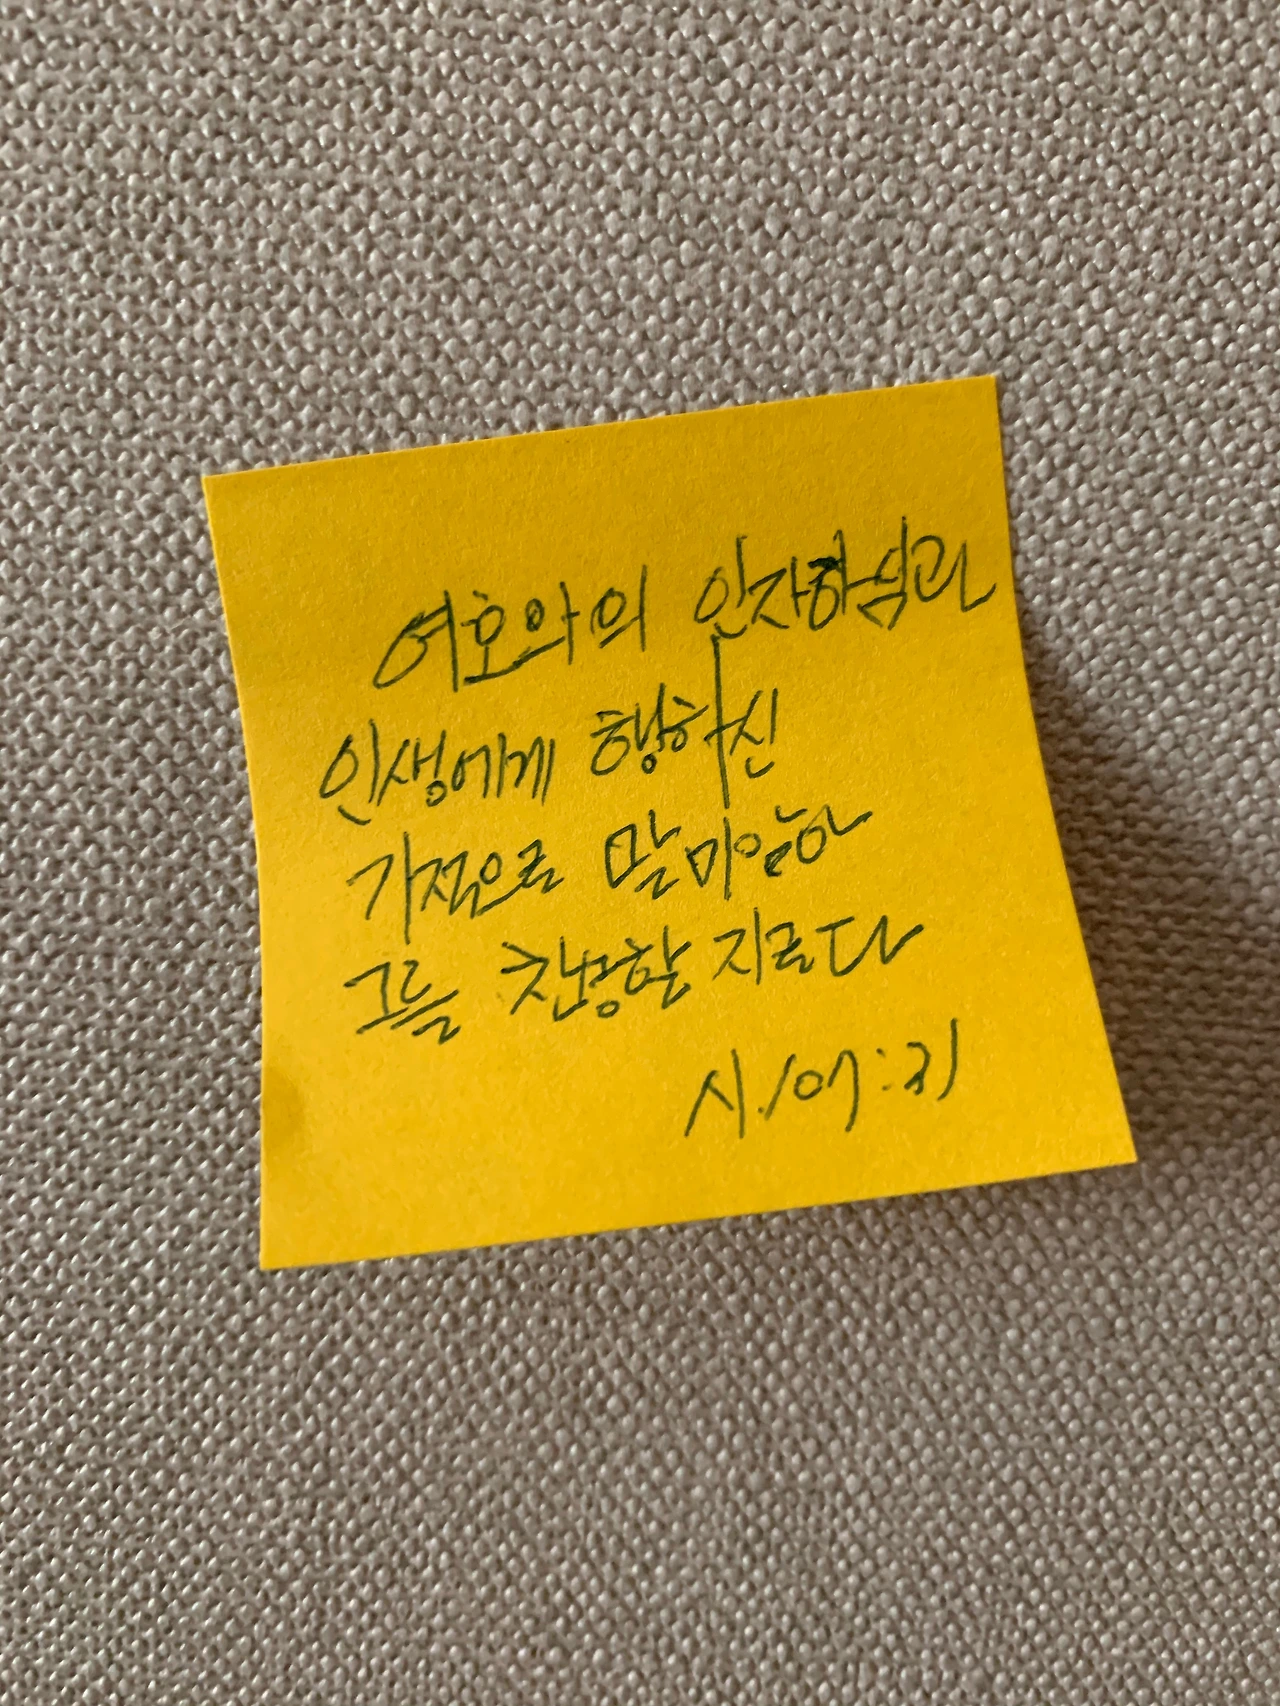 여호와의 인자하심과
인생에게 행하신
기적으로 말미암아
그를 찬송할 지로다
시.107:21